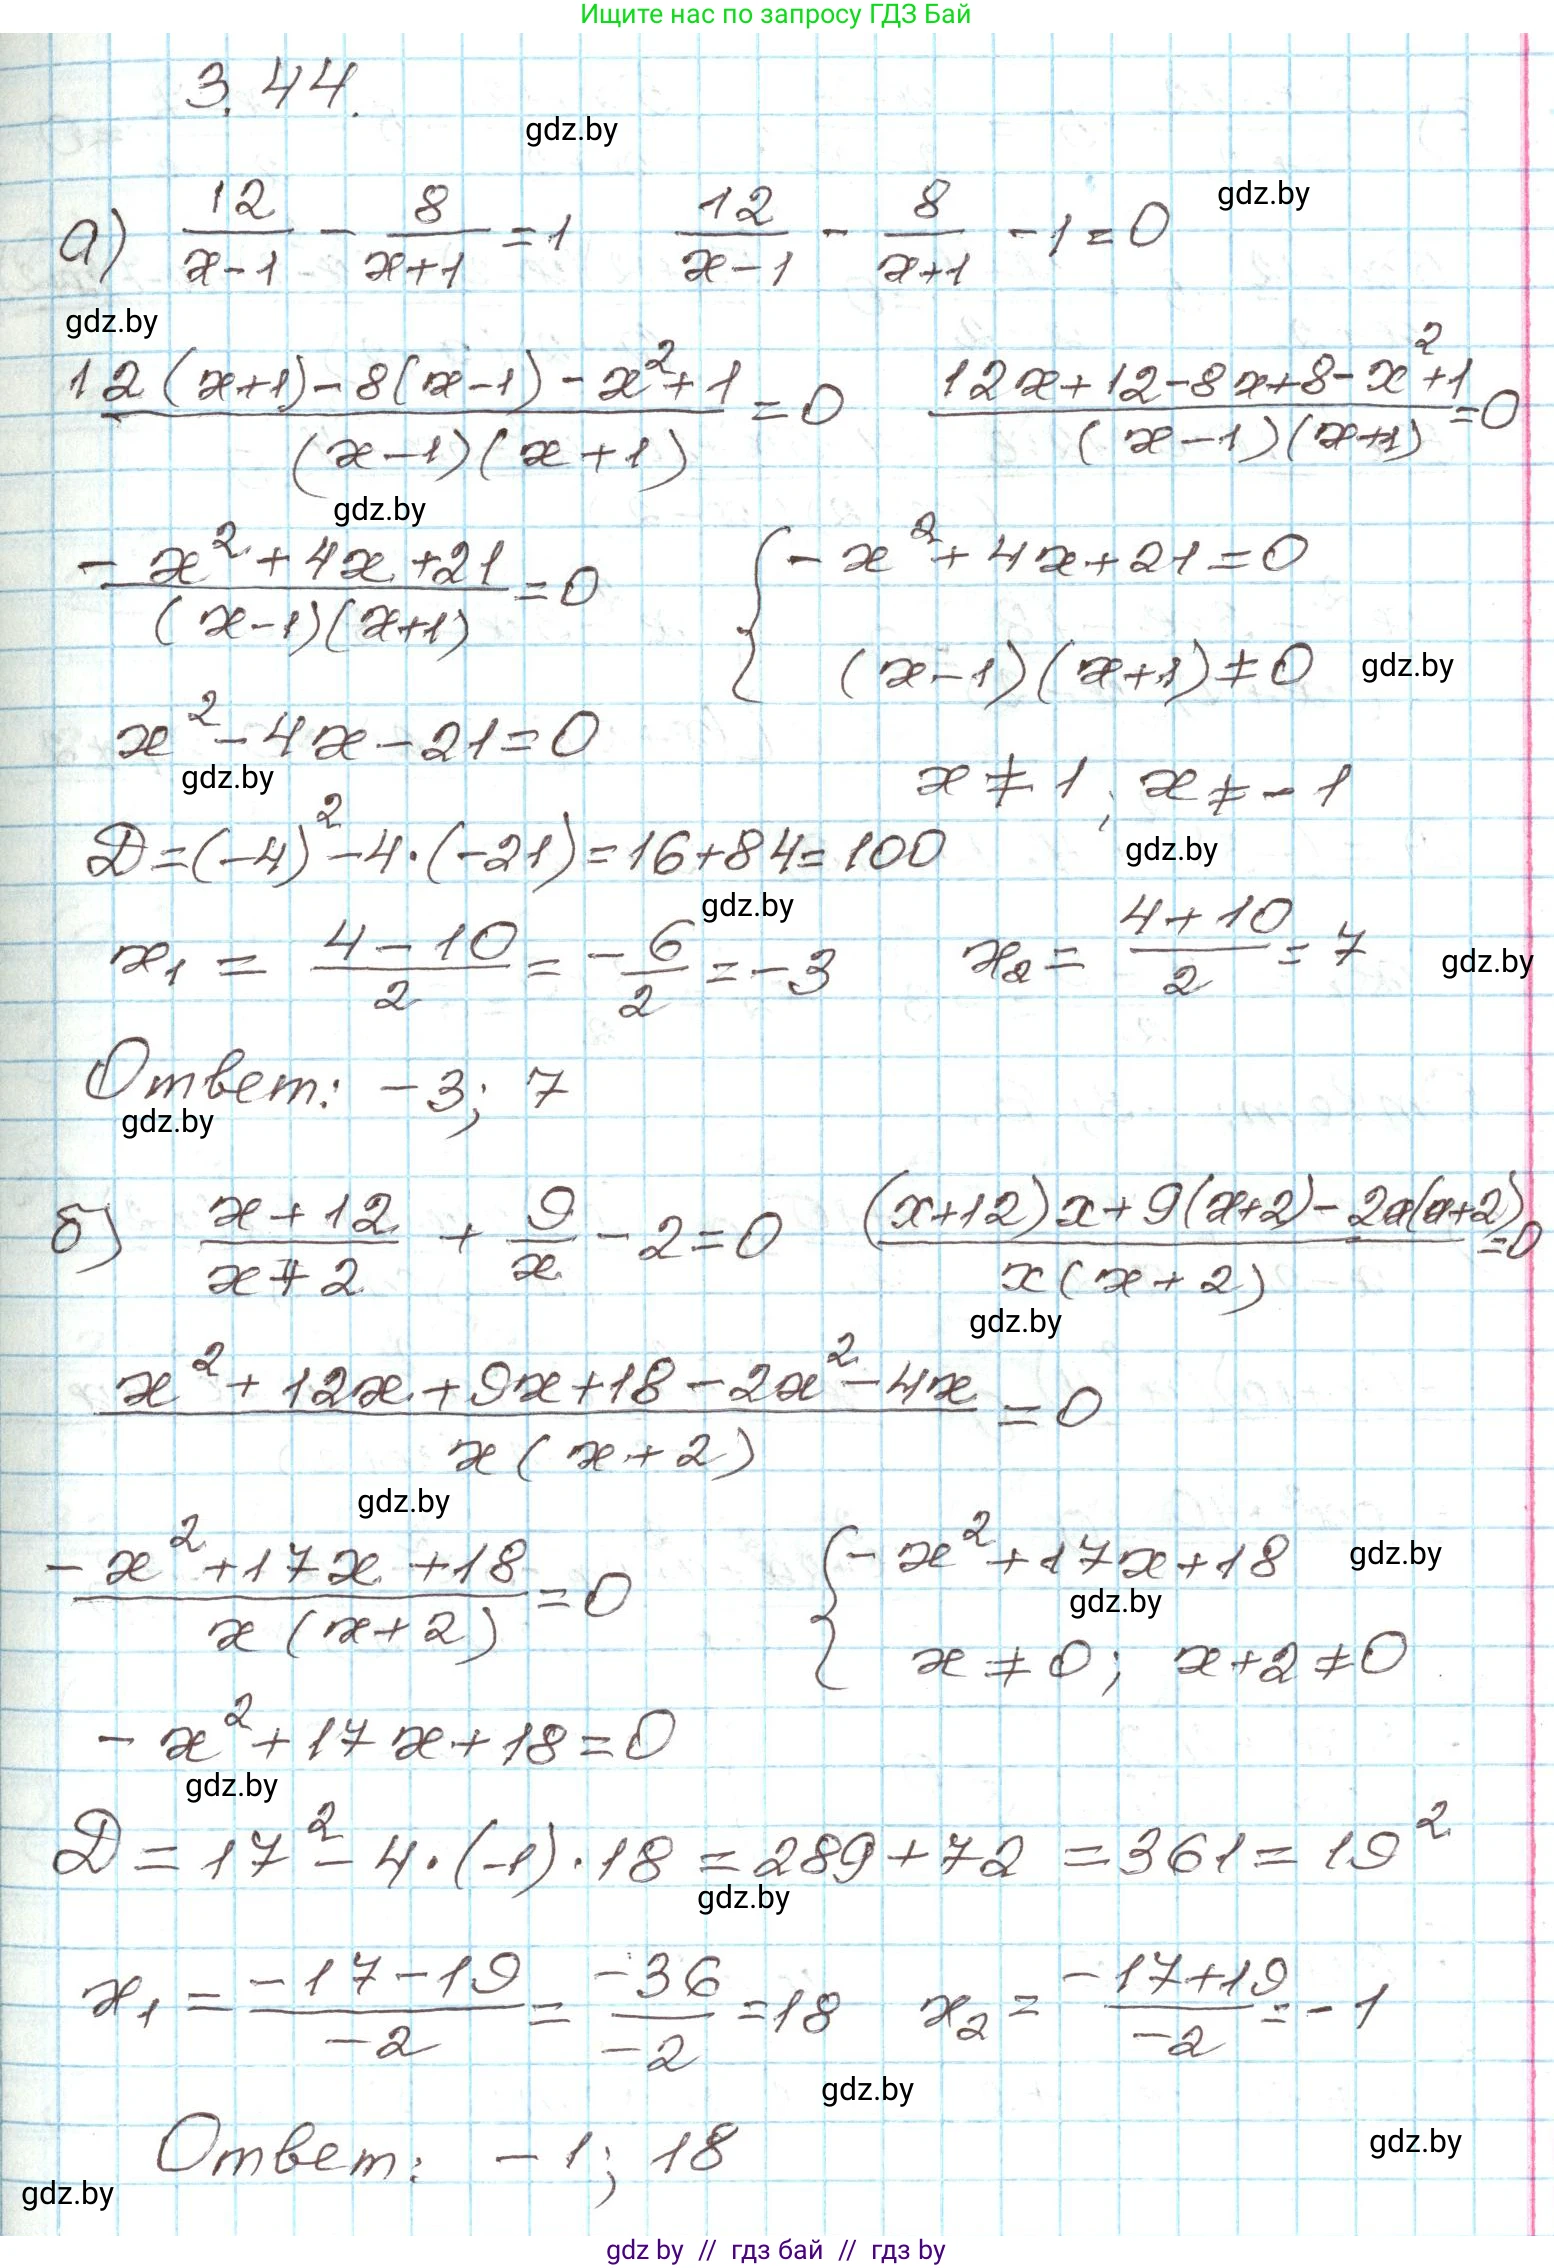 Ищите нас по запросу ГДЗ Бай
3.44.
gdz.by
а) 12/(x-1) - 8/(x+1) = 1    12/(x-1) - 8/(x+1) - 1 = 0
gdz.by
gdz.by
(12(x+1) - 8(x-1) - x² + 1)/((x-1)(x+1)) = 0    (12x + 12 - 8x + 8 - x² + 1)/((x-1)(x+1)) = 0
gdz.by
(-x² + 4x + 21)/((x-1)(x+1)) = 0    { -x² + 4x + 21 = 0
(x-1)(x+1) ≠ 0
gdz.by
x² - 4x - 21 = 0
gdz.by
x ≠ 1; x ≠ -1
gdz.by
Д = (-4)² - 4·(-21) = 16 + 84 = 100
gdz.by
x₁ = (4-10)/2 = -6/2 = -3    x₂ = (4+10)/2 = 7
gdz.by
Ответ: -3; 7
gdz.by
б) (x+12)/(x+2) + 9/x - 2 = 0    ((x+12)x + 9(x+2) - 2x(x+2))/(x(x+2)) = 0
gdz.by
(x² + 12x + 9x + 18 - 2x² - 4x)/(x(x+2)) = 0
gdz.by
(-x² + 17x + 18)/(x(x+2)) = 0    { -x² + 17x + 18
gdz.by
gdz.by
x ≠ 0; x+2 ≠ 0
-x² + 17x + 18 = 0
gdz.by
Д = 17² - 4·(-1)·18 = 289 + 72 = 361 = 19²
gdz.by
x₁ = (-17-19)/(-2) = (-36)/(-2) = 18    x₂ = (-17+19)/(-2) = -1
gdz.by
Ответ: -1; 18
gdz.by
gdz.by
gdz by // гдз бай // гдз by